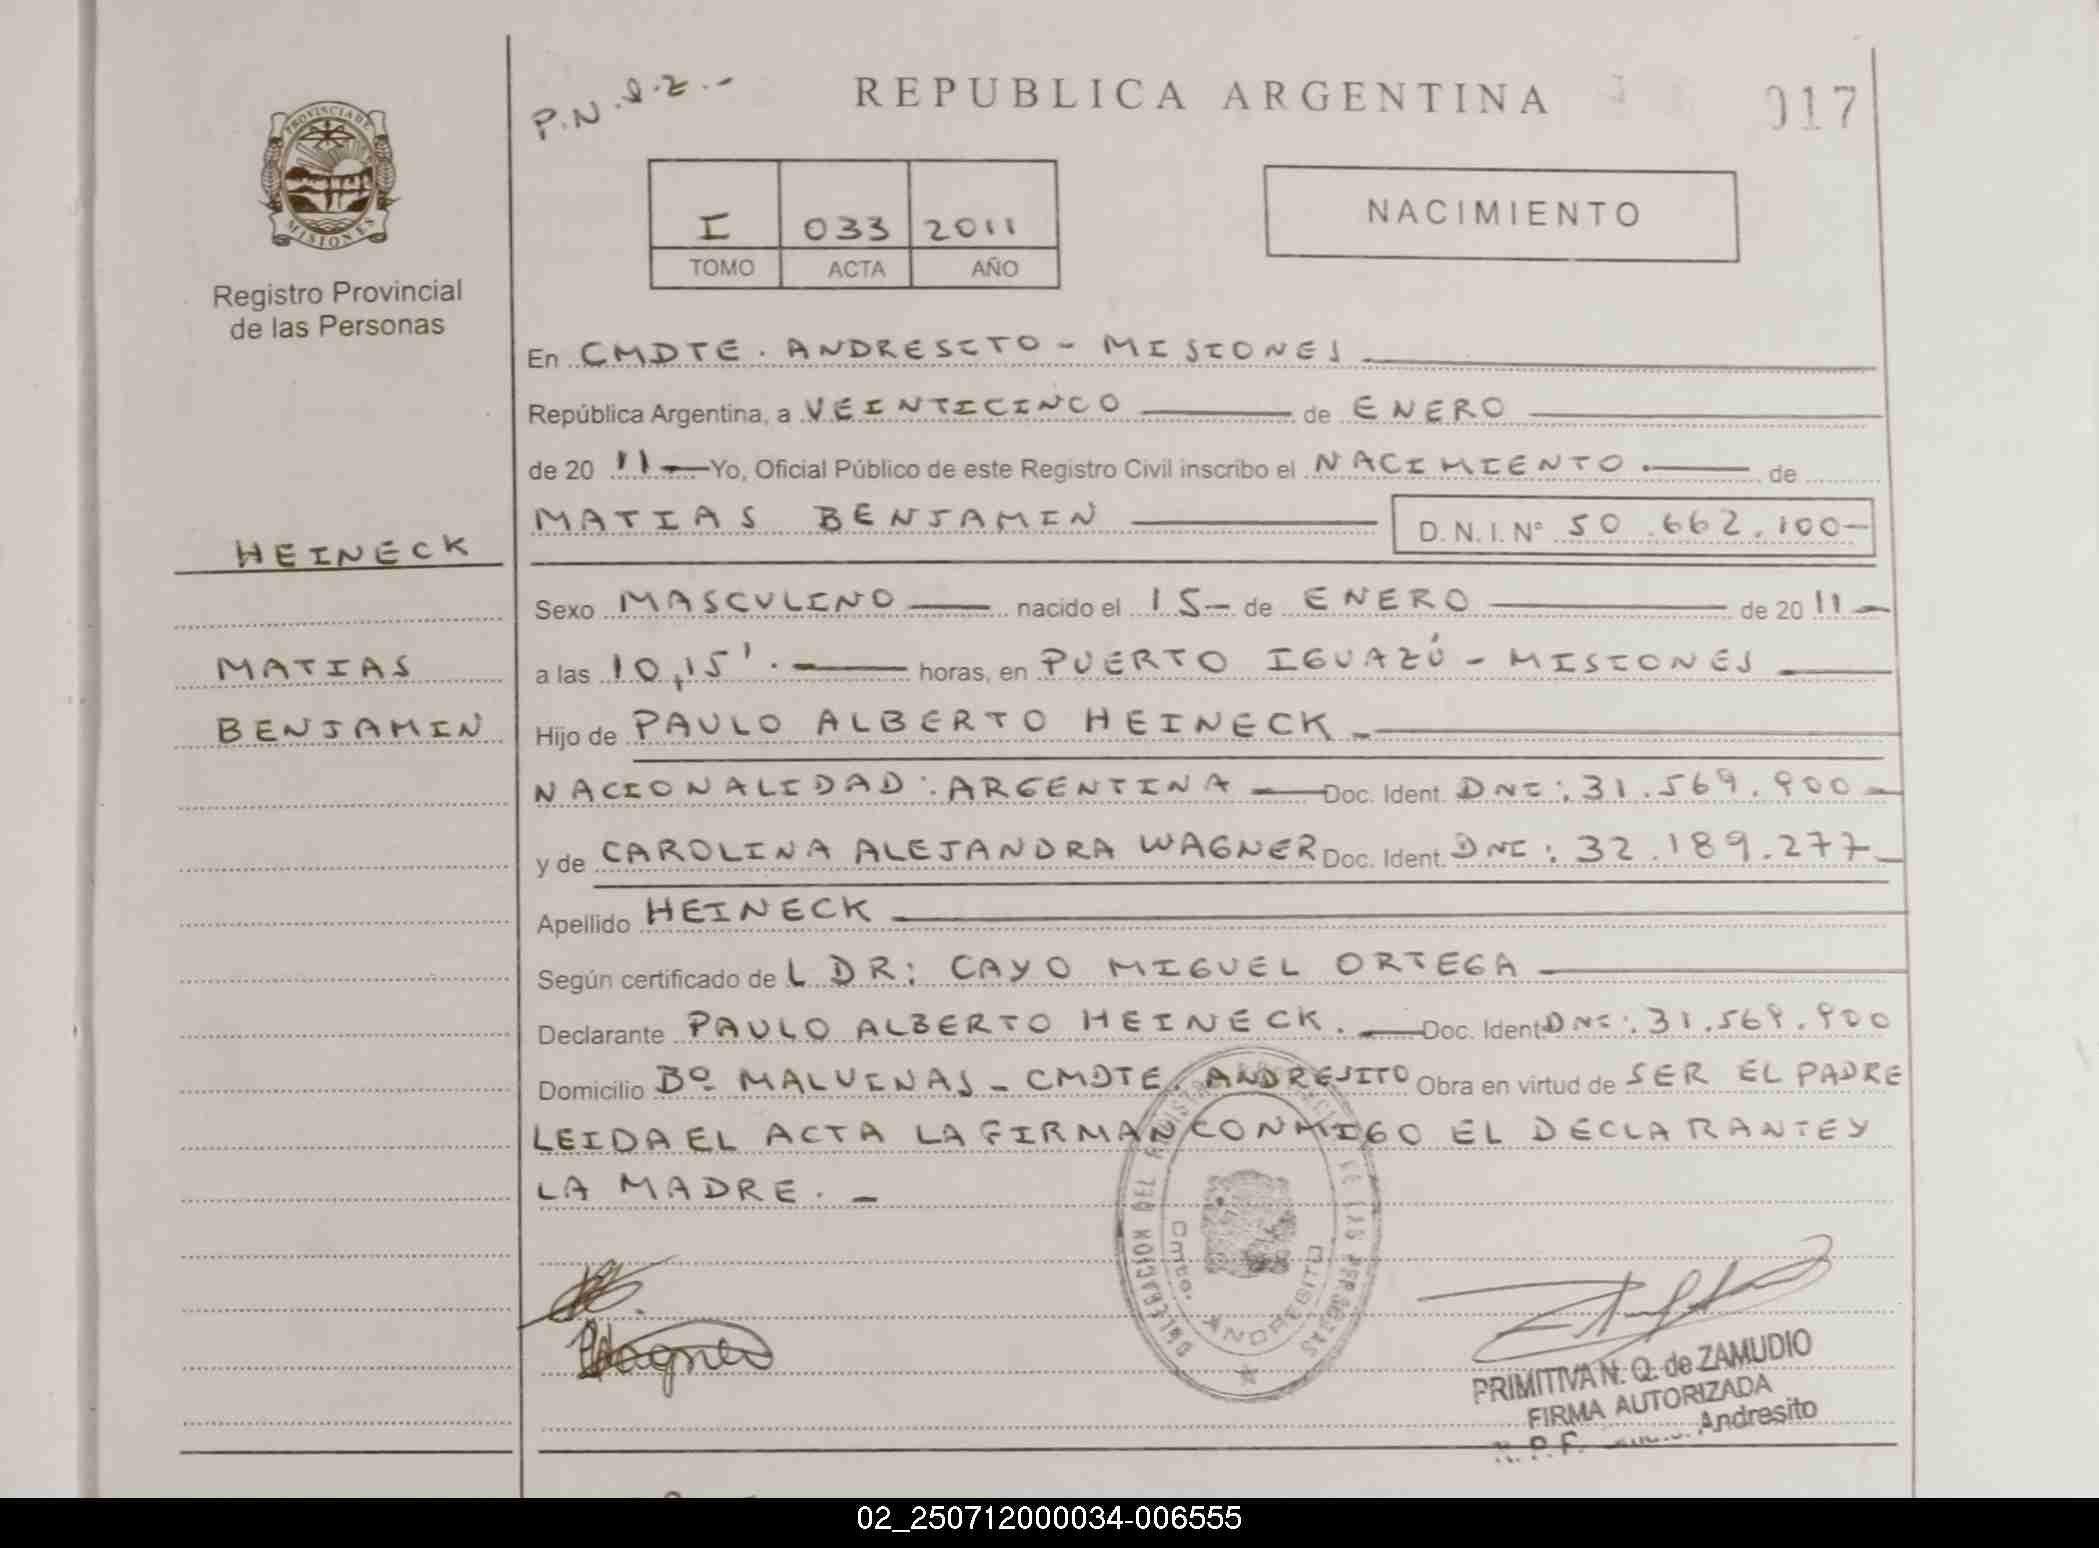 P.N.
REPUBLICA ARGENTINA
017
PROVINCIA DE
MISIONES
Registro Provincial
de las Personas
I 033 2011
TOMO ACTA AÑO
NACIMIENTO
En CMDTE. ANDRESITO - MISIONES
República Argentina, a VEINTICINCO de ENERO
de 20 11 Yo, Oficial Público de este Registro Civil inscribo el NACIMIENTO. de
MATIAS BENJAMIN D. N. I. Nº 50.662.100-
HEINECK
Sexo MASCULINO nacido el 15- de ENERO de 20 11-
MATIAS
a las 10,15'. horas, en PUERTO IGUAZÚ - MISIONES
BENJAMIN
Hijo de PAULO ALBERTO HEINECK.
NACIONALIDAD: ARGENTINA Doc. Ident. DNI: 31.569.900-
y de CAROLINA ALEJANDRA WAGNER Doc. Ident. DNI: 32.189.277-
Apellido HEINECK
Según certificado de L DR: CAYO MIGUEL ORTEGA
Declarante PAULO ALBERTO HEINECK. Doc. Ident DNI: 31.569.900
Domicilio Bº MALVINAS - CMDTE. ANDRESITO Obra en virtud de SER EL PADRE
LEIDA EL ACTA LA FIRMAN CONMIGO EL DECLARANTE Y
LA MADRE. -
DELEGACION DEL REGISTRO PROVINCIAL DE LAS PERSONAS
Cmte. ANDRESITO
Wagner
PRIMITIVA N. Q. de ZAMUDIO
FIRMA AUTORIZADA
R. P. F. Andresito
02_250712000034-006555